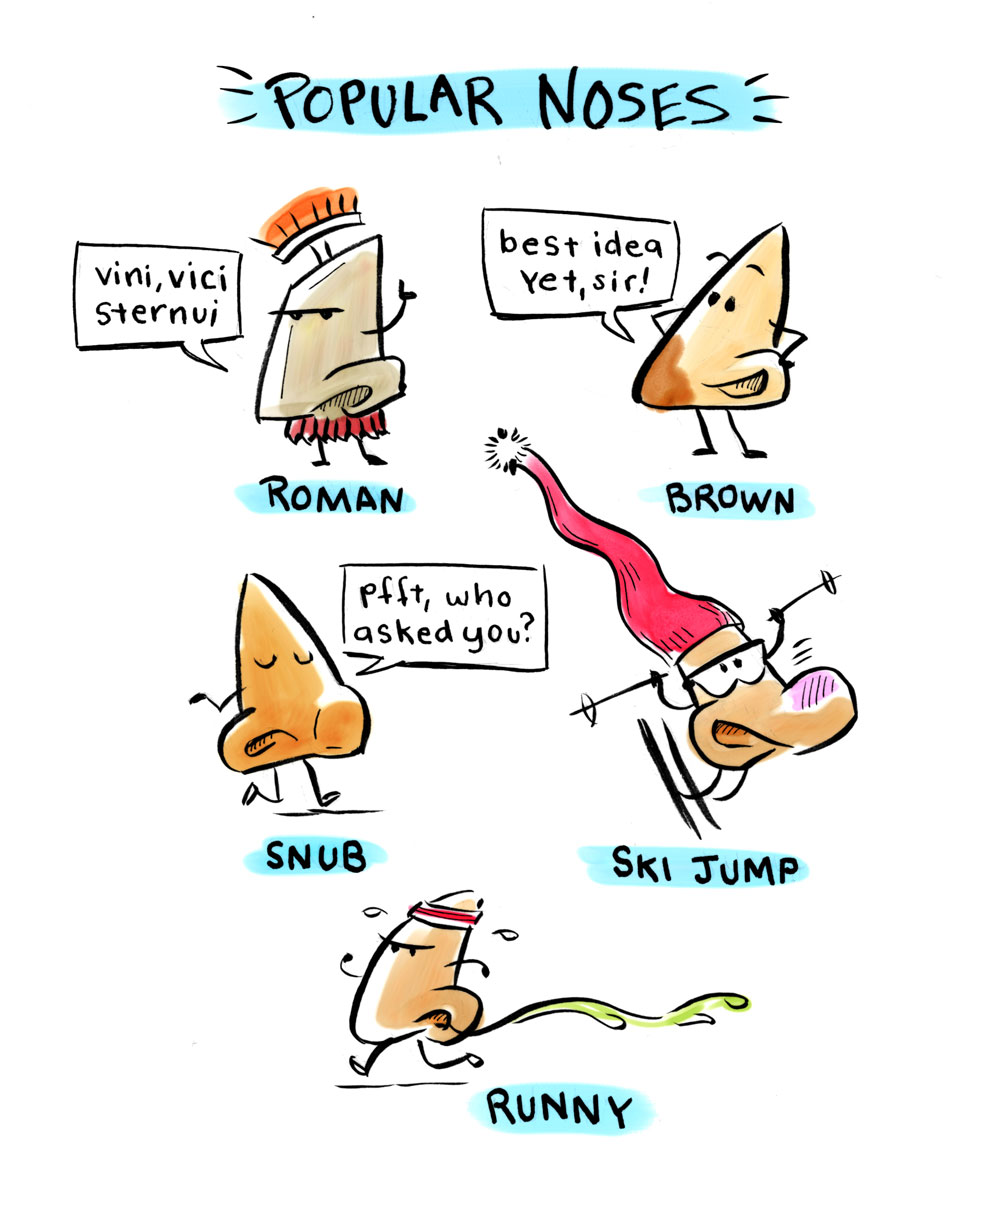 POPULAR NOSES
vini, vici
sternui
best idea
yet, sir!
ROMAN
BROWN
pfft, who
asked you?
SNUB
SKI JUMP
RUNNY